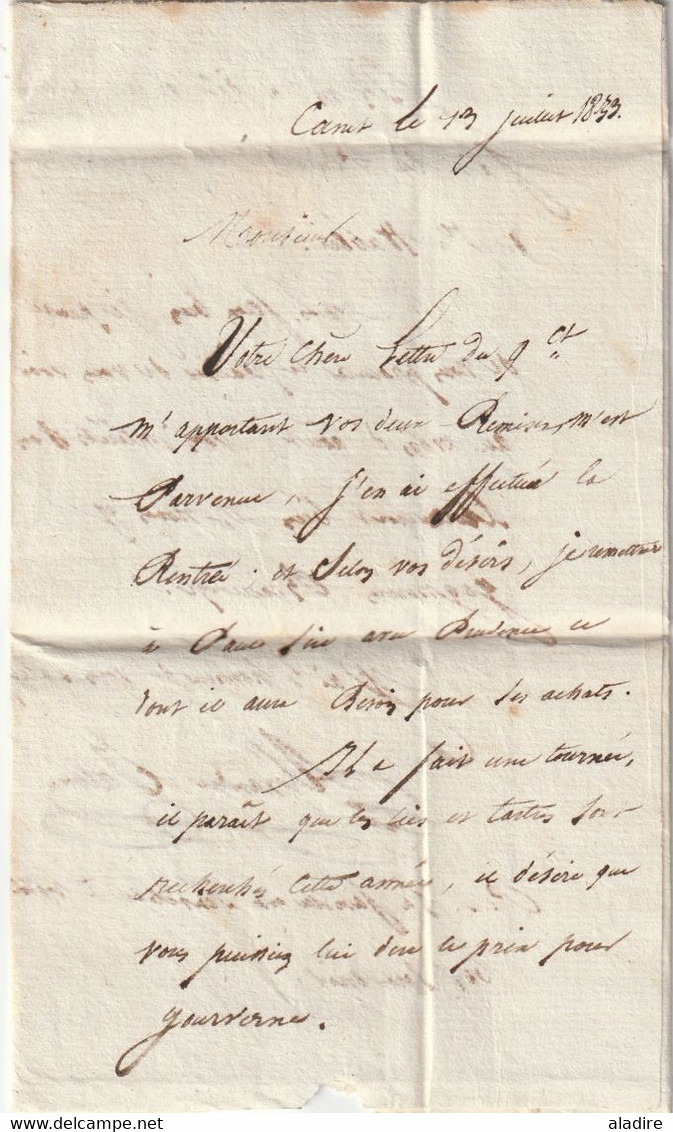 Canet le 13 juillet 1833.
Monsieur
Votre Chère Lettre du 9 ct
m'apportant vos deux Remises, m'est
Parvenue, j'en ai effectué la
Rentrée, et Selon vos désirs, je remettrai
à avec Prudence ce
dont il aura Besoin pour ses achats.
Il a fait une tournée,
il paraît que les lies et tartres sont
recherchés cette année, il désire que
vous puissiez lui dire le prix pour
gourverne.
delcampe.net
aladire